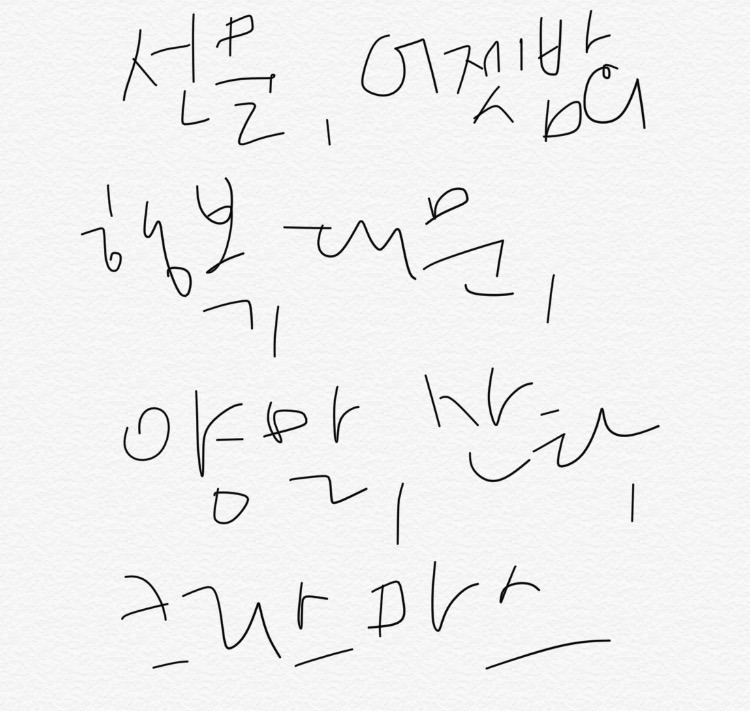 선물, 어젯밤에
행복, 대문,
양말, 산타,
크리스마스